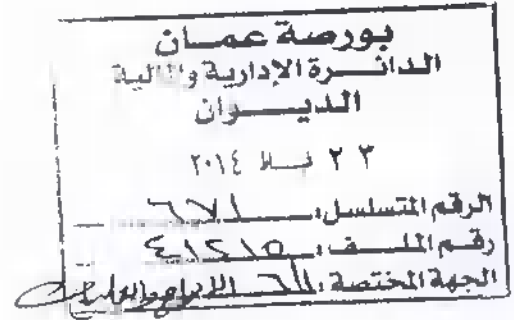 بورصة عمان
الدائرة الإدارية والمالية
الديوان
٢٣ شباط ٢٠١٤
الرقم المتسلسل: ٦٧١
رقم الملف: ٤١٢١٥
الجهة المختصة: الإدراج والعمليات